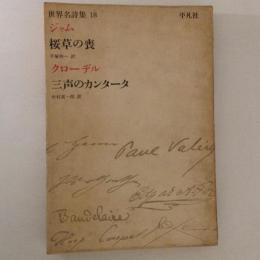 世界名詩集 18
平凡社
ジャム
桜草の喪
手塚伸一 訳
クローデル
三声のカンタータ
中村真一郎 訳
Paul Valéry
Edgar A. Poe
Baudelaire